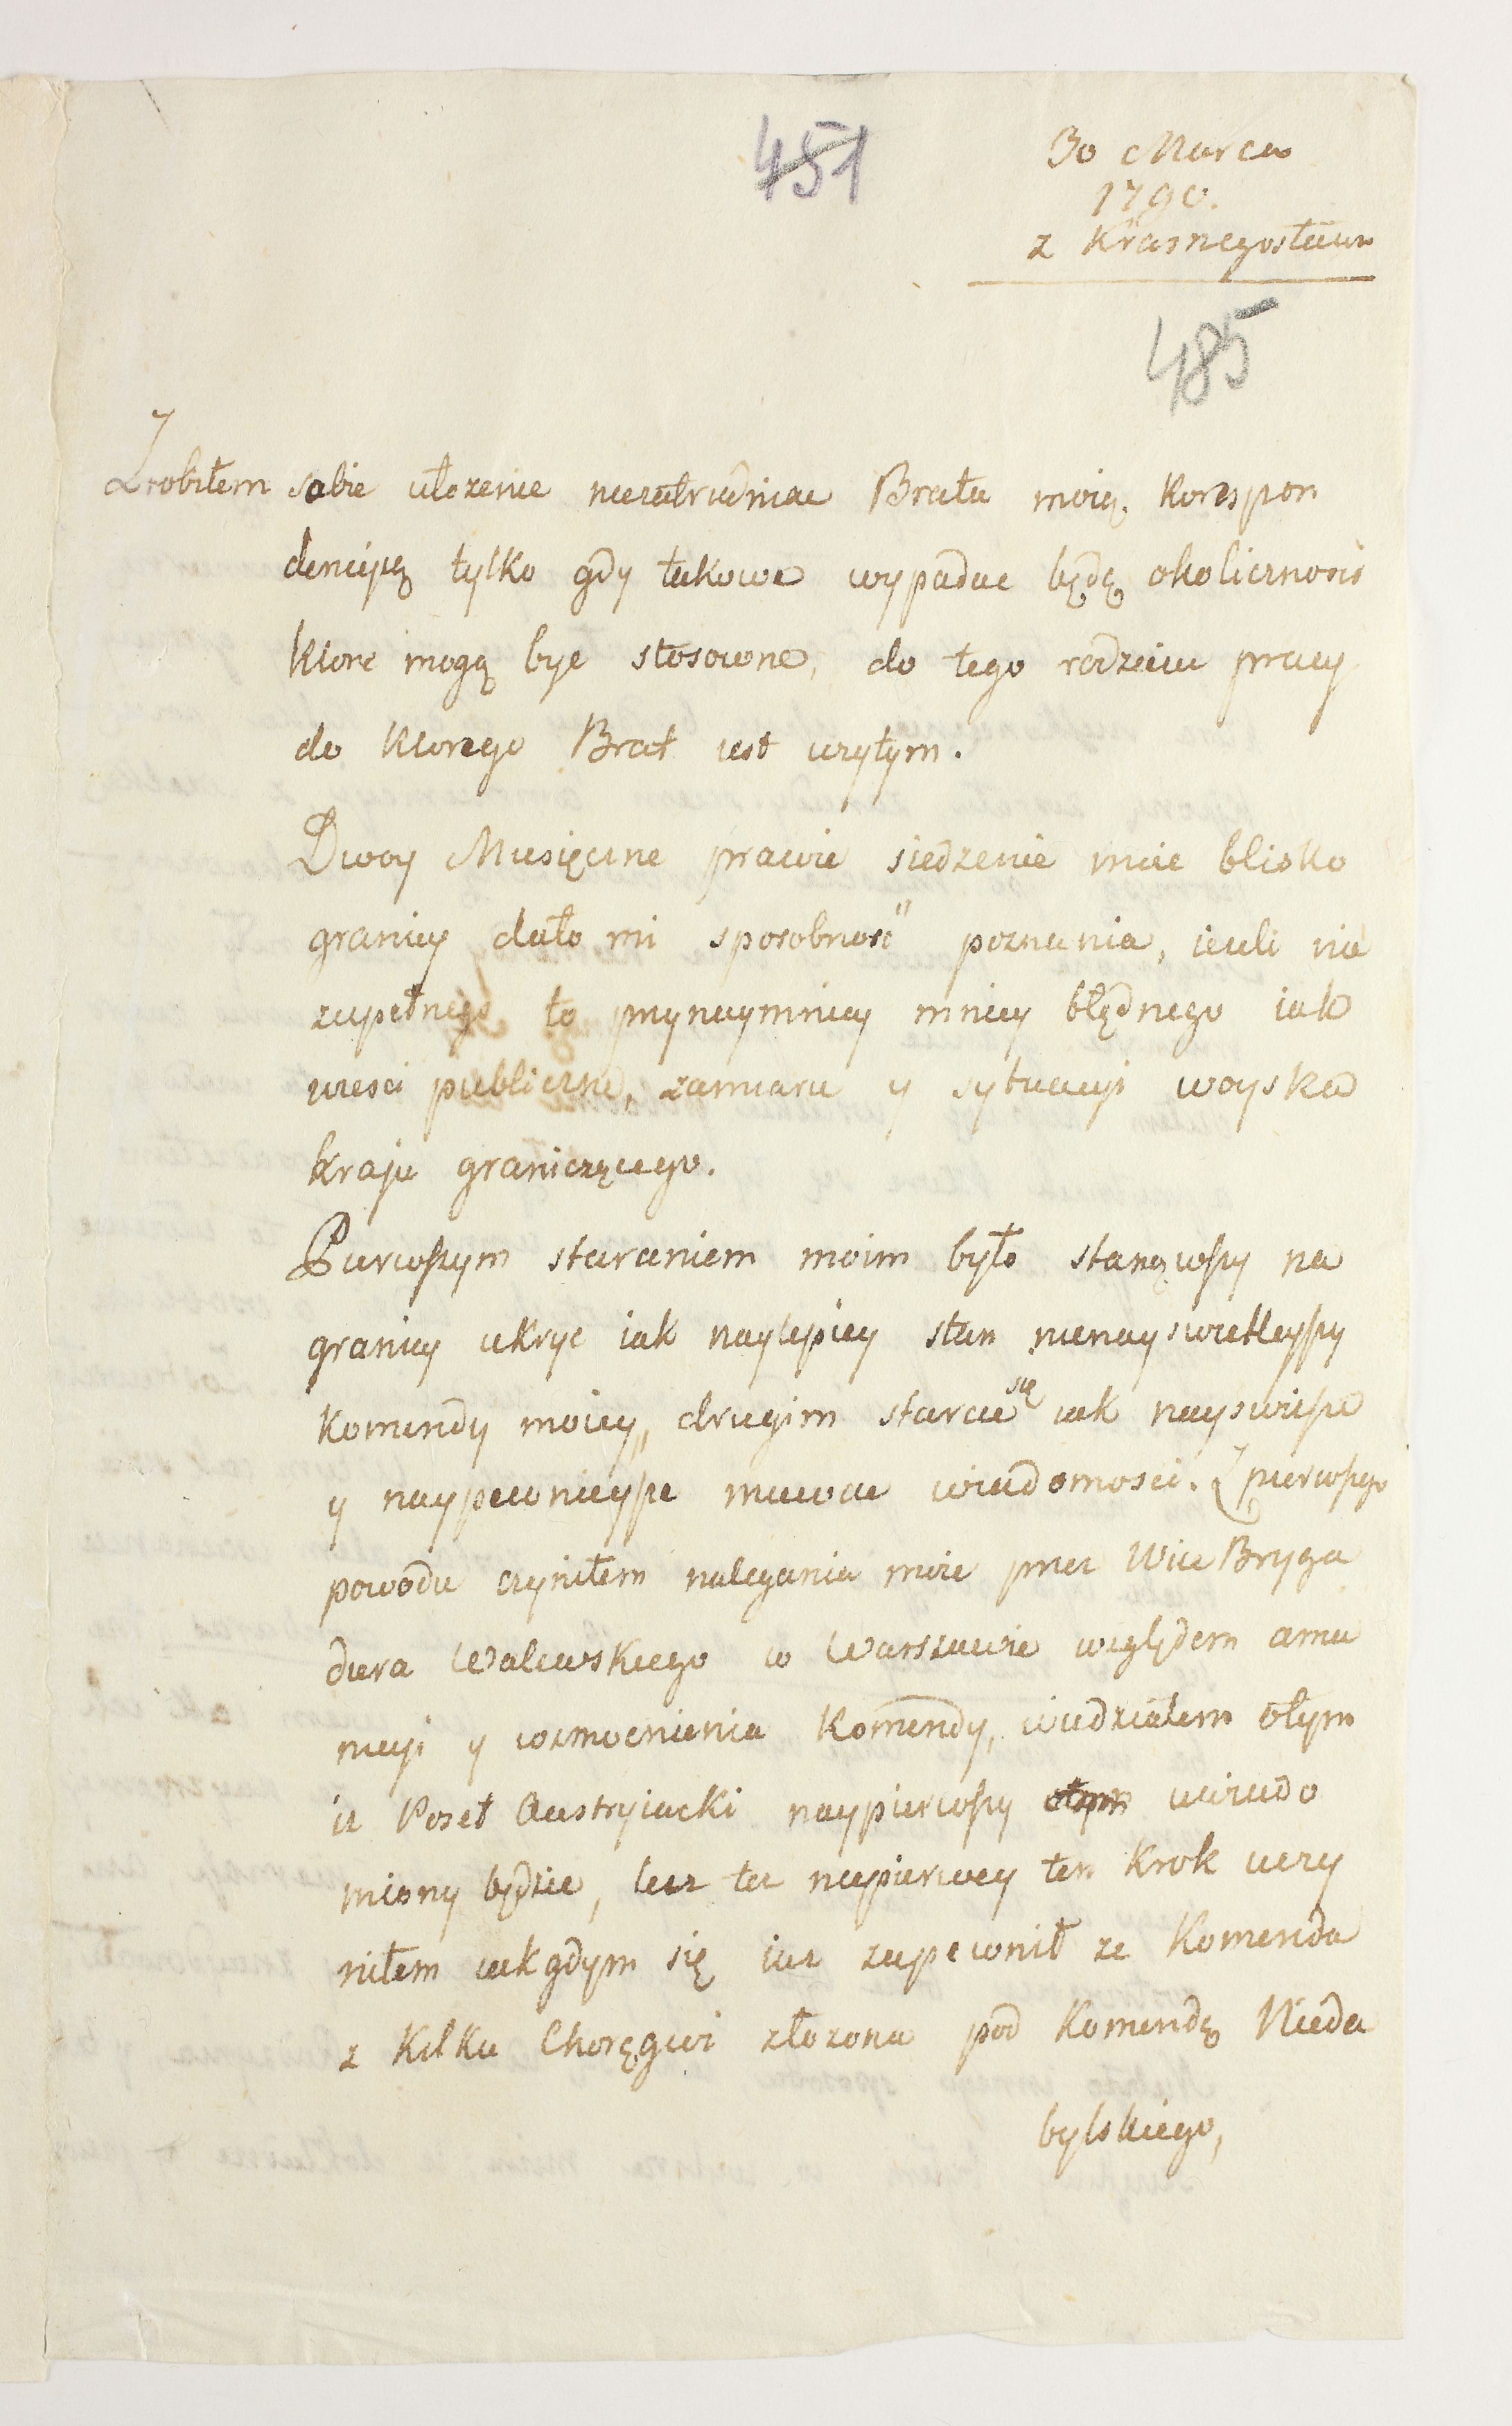 451
30 Marca
1790.
z Krasnegostawu
485
Zrobiłem sobie ułozenie niezatrudniac Brata moią korespon
dencyią tylko gdy takowe wypadac będą okolicznosci
ktore mogą byc stosowne, do tego rodzaiu pracy
do ktorego Brat iest uzytym.
Dwoy Miesięczne prawie siedzenie moie blisko
granicy dało mi sposobność poznania, iezeli nie
zupełnego to przynaymniey mniey błędnego iak
wiesci publiczne, zamiaru y sytuacyi woyska
kraju graniczącego.
Pierwszym staraniem moim było stanąwszy na
granicy ukryc iak naylepiey stan nienayswietleyszy
komendy moiey, drugim starac się iak nayswiesze
y naypewnieysze miewac wiadomosci. Z pierwszego
powodu czyniłem nalegania moie przez Wice Bryga
diera Walewskiego w Warszawie względem amu
nicyi y wzmocnienia Komendy, wiedziałem otym
iz Poseł Austryiacki naypierwszy uwiado
miony będzie, lecz tez niepierwey ten krok uczy
niłem iak gdym się iuz zapewnił ze Komenda
z kilku Chorągwi złozona pod Komendą Nieda
bylskiego,